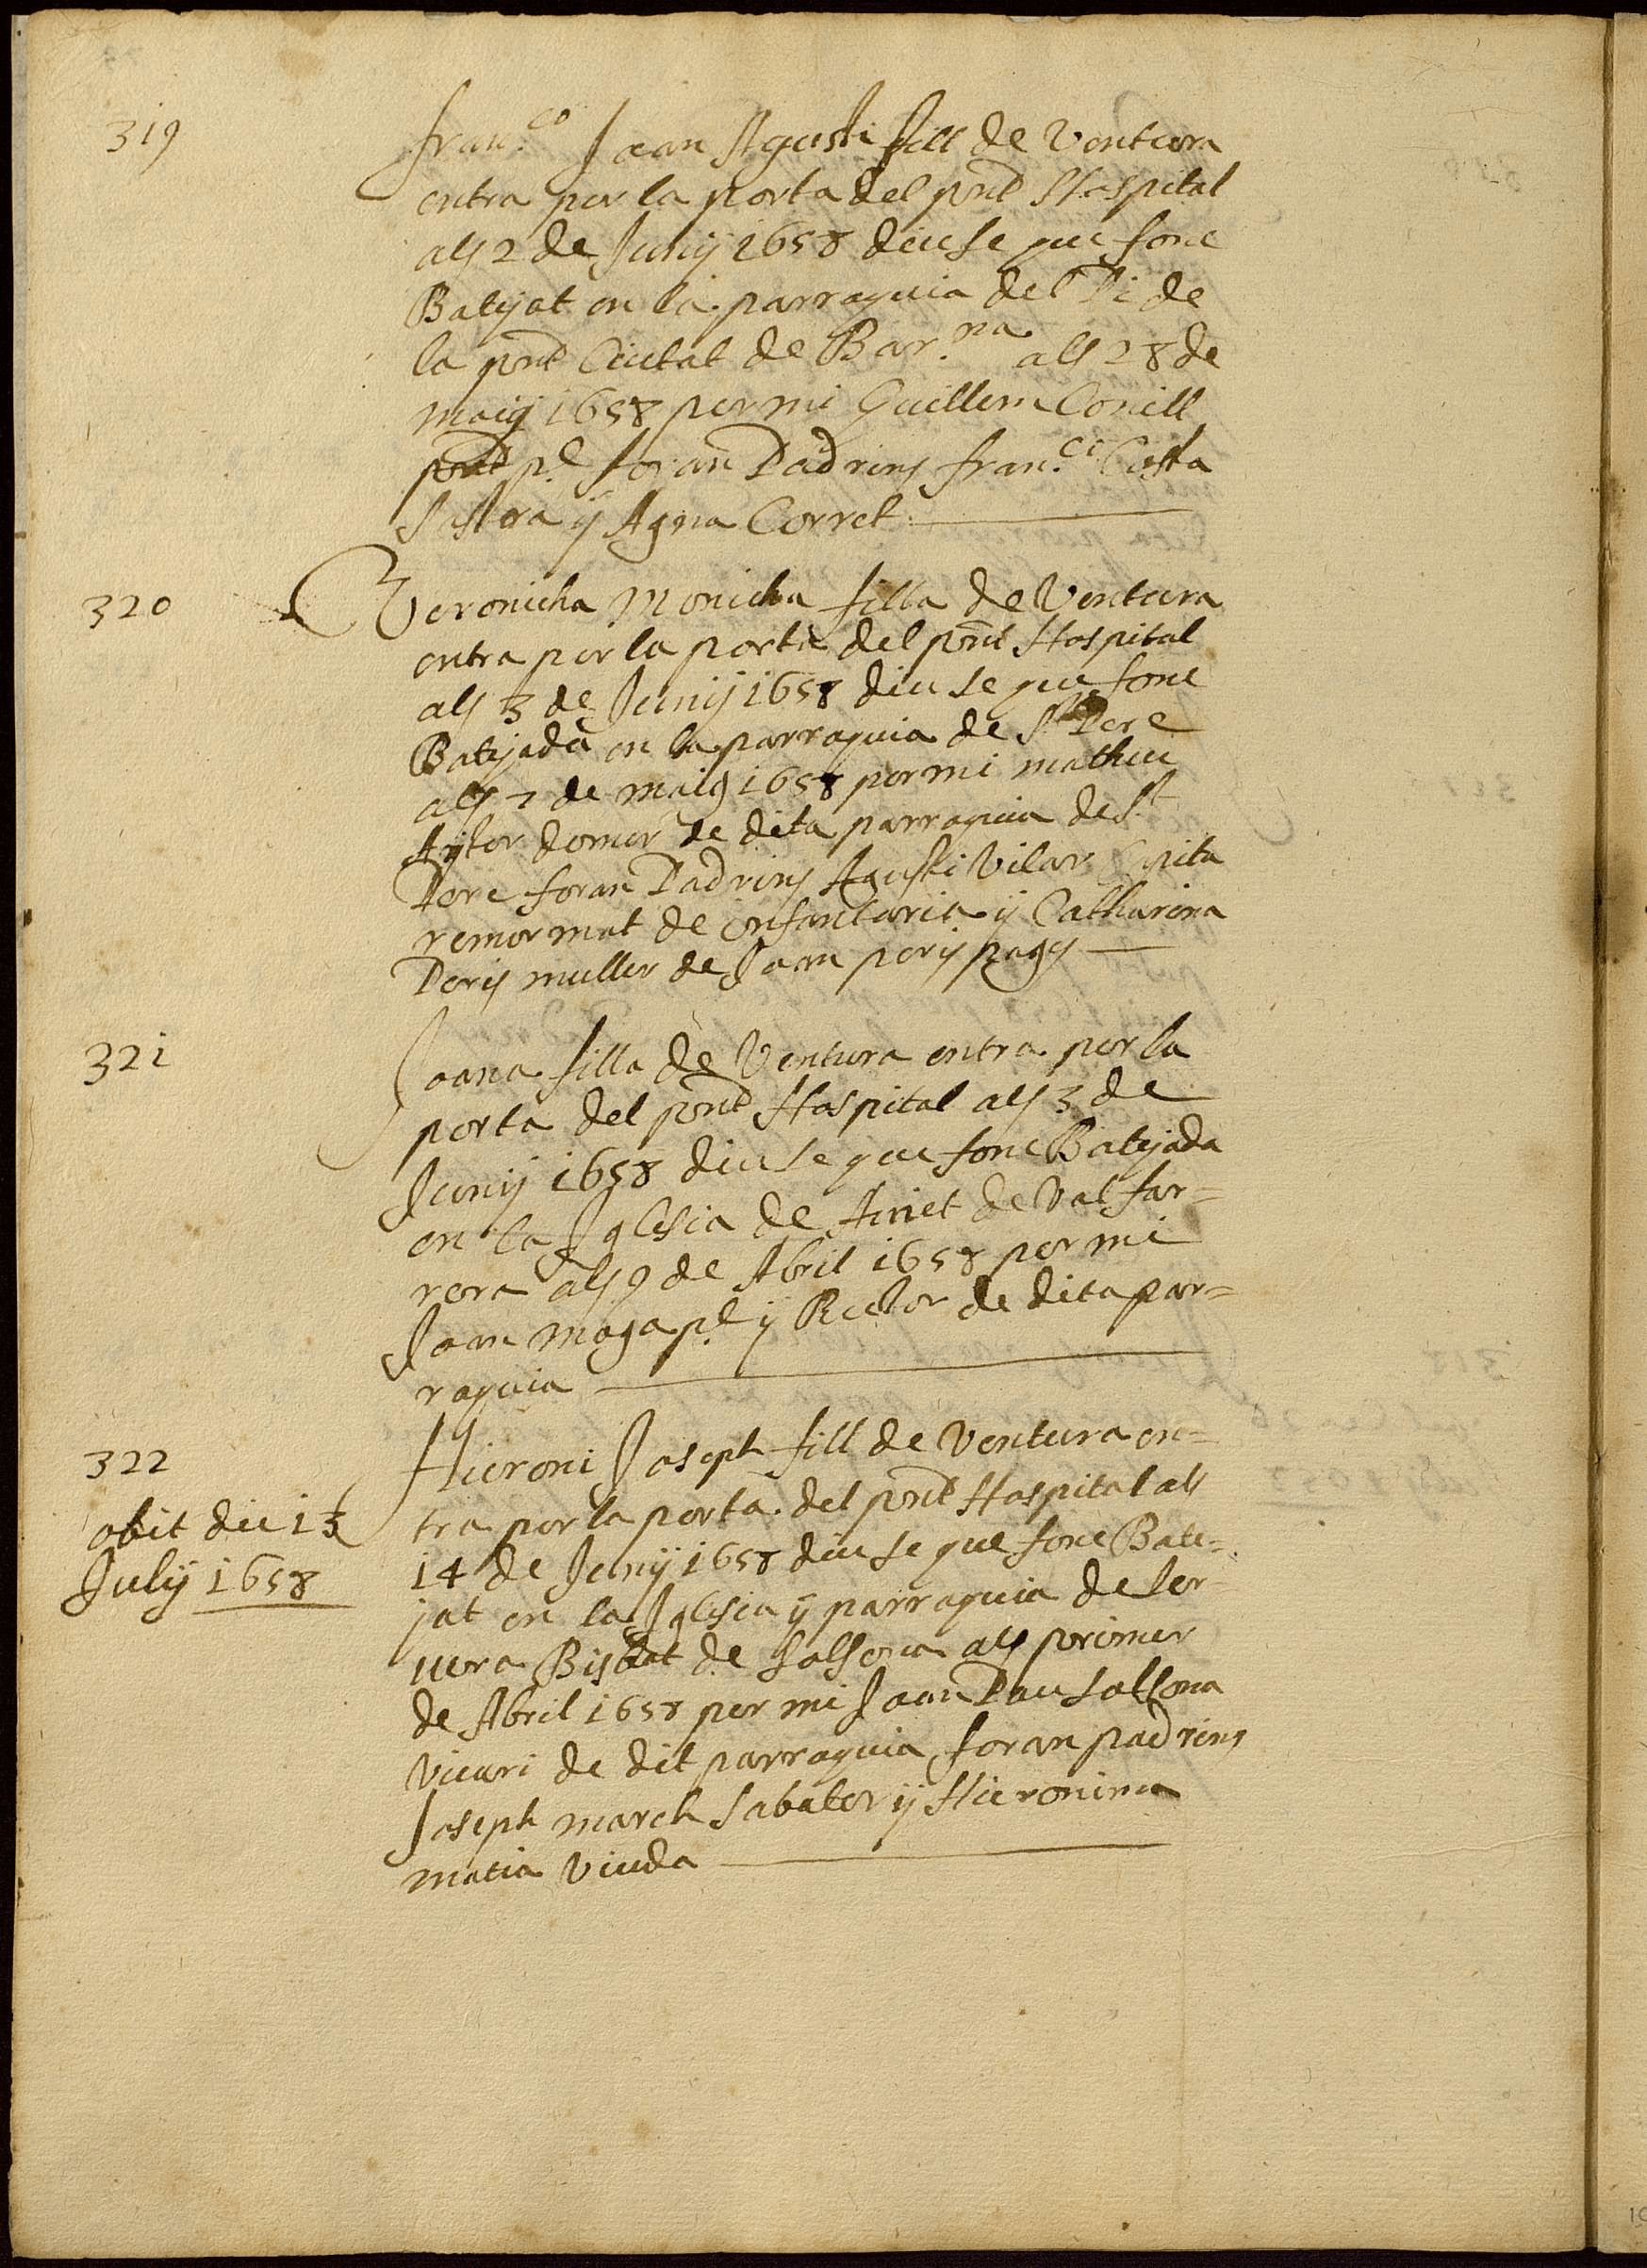 319
fran.co Joan Agusti fill de Ventura
entra per la porta del pnt Hospital
als 2 de Junij 1658 diuse que fonc
Batejat en la parraquia del Pi de
la pnt Ciutat de Bar.na als 28 de
maig 1658 per mi Guillem Conill
pnt p.e foran Padrins fran.ci Costa
Sastra ÿ Agna Corret
320
Veronicha Monicha filla de Ventura
entra per la porta del pnt Hospital
als 3 de Junij 1658 diu se que fonc
Batejada en la parraquia de St Pere
als 7 de maig 1658 per mi matheu
domer de dita parraquia de St
Pere foran Padrins Agusti Vilar Capita
remormat de infantaria ÿ Catharina
Peris muller de Joan peris pages
321
Joana filla de Ventura entra per la
porta del pnt Hospital als 3 de
Junij 1658 diu se que fonc Batejada
en la Iglesia de Ainet de Val far=
rera als 9 de Abril 1658 per mi
Joan Maga p.e ÿ Rector de dita par=
raquia
322
obit die 13
Julij 1658
Hieroni Joseph fill de Ventura en=
tra per la porta del pnt Hospital als
14 de Junij 1658 diu se que fonc Bate=
jat en la Iglesia ÿ parraquia de Ser=
uera Bisbat de Solsona als primer
de Abril 1658 per mi Joan Pau Solsona
Vicari de dit parraquia foran padrins
Joseph march Sabater ÿ Hieronima
matia Viuda